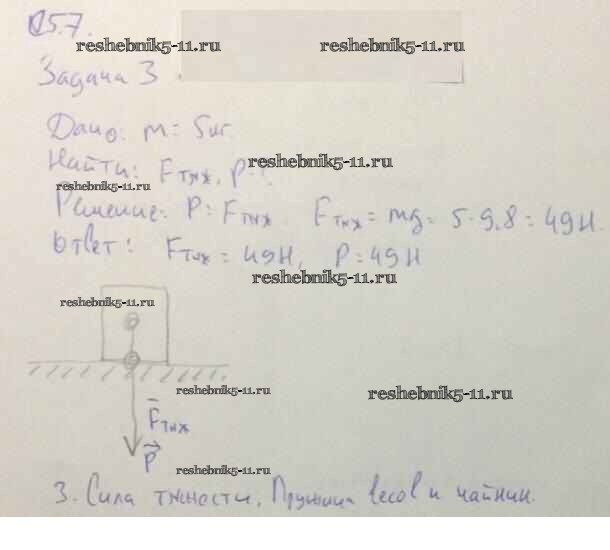 §5.7.
reshebnik5-11.ru reshebnik5-11.ru
Задача 3.
Дано: m = 5 кг.
Найти: Fтяж, P-?
reshebnik5-11.ru
reshebnik5-11.ru
Решение: P = Fтяж. Fтяж = mg = 5·9,8 = 49Н.
Ответ: Fтяж = 49Н, P = 49Н
reshebnik5-11.ru
reshebnik5-11.ru
reshebnik5-11.ru reshebnik5-11.ru
Fтяж
P
reshebnik5-11.ru
3. Сила тяжести. Пружина весов и чайник.